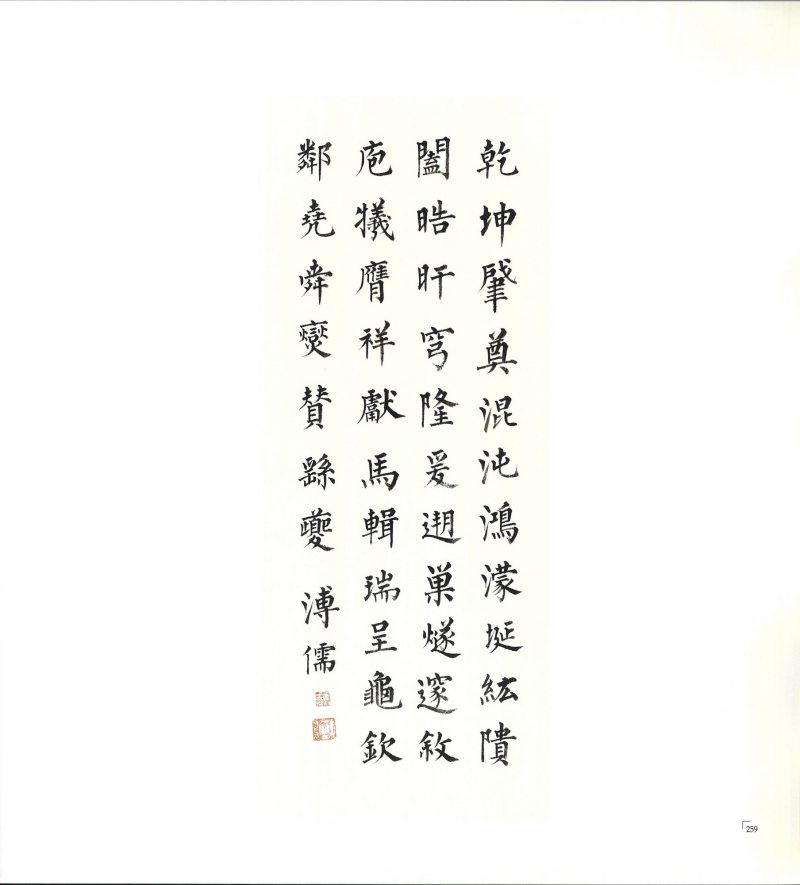 乾坤肇奠混沌鴻濛埏紘隤
闔晧旰穹隆爰遡巢燧邃敘
庖犧膺祥獻馬輯瑞呈龜欽
鄰堯舜爕贊繇夔
溥儒
259